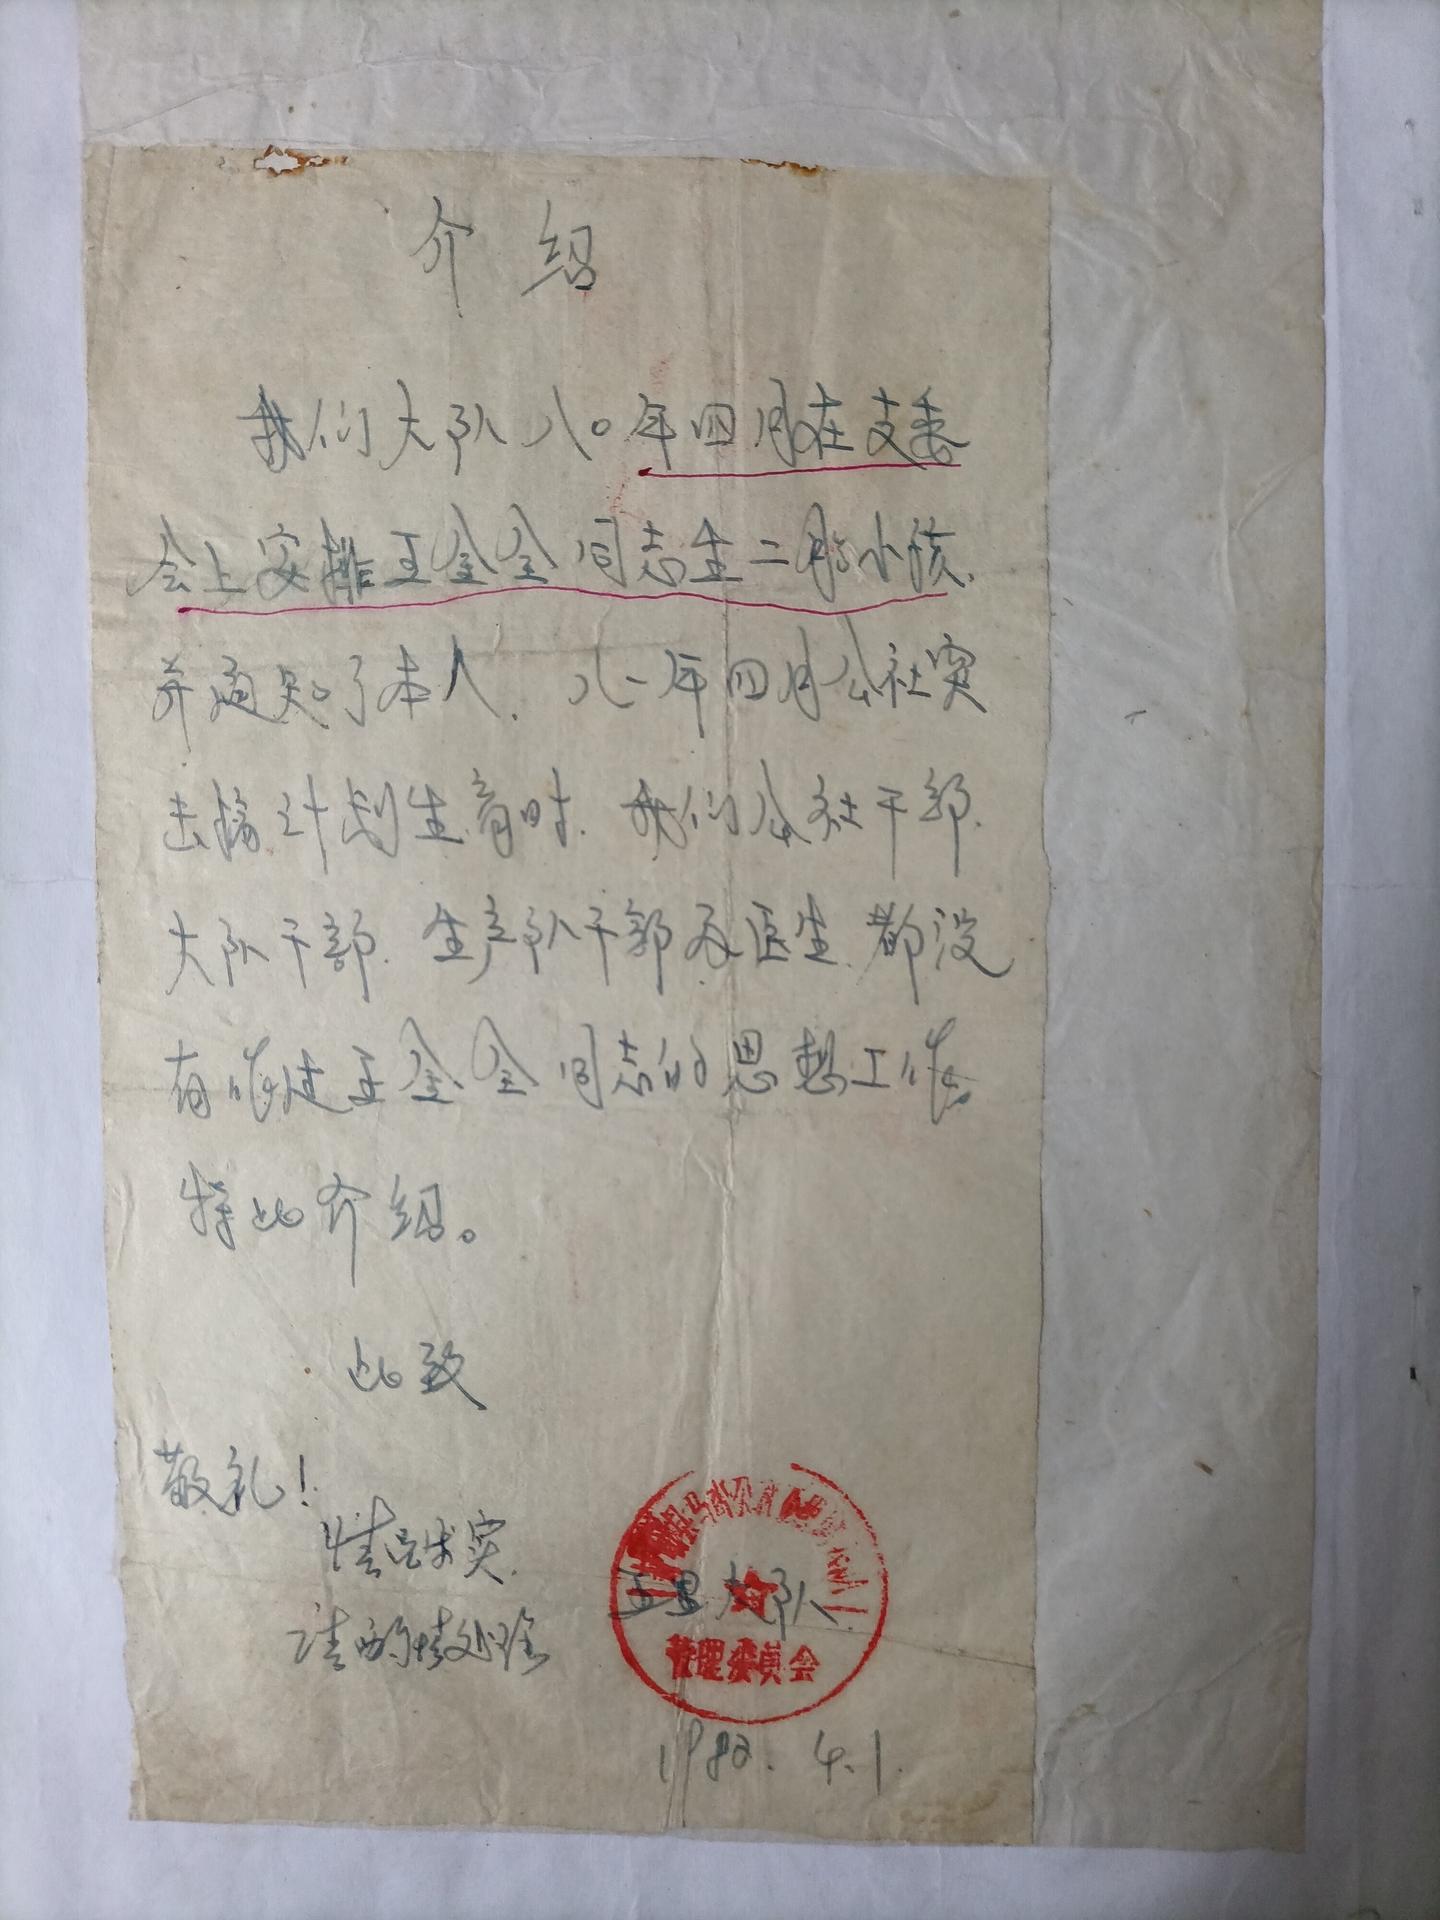 介绍
我们大队八〇年四月在支委
会上安排王金金同志生二胎小孩.
并通知了本人. 八一年四月公社突
击搞计划生育时. 我们公社干部.
大队干部. 生产队干部及医生. 都没
有做过王金金同志的思想工作.
特此介绍。
此致
敬礼!
情况属实.
请酌情处理
大队
管理委员会
1982. 4.1.